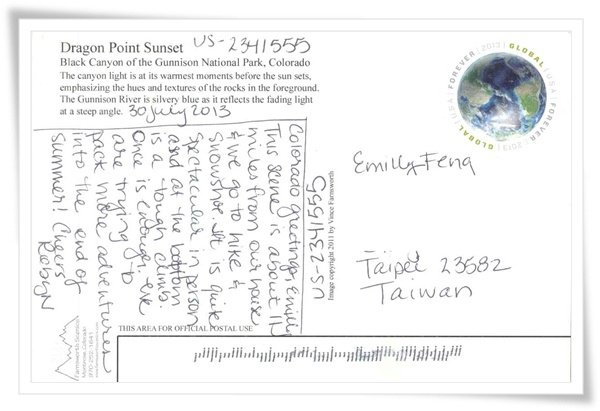 Dragon Point Sunset US-2341555
Black Canyon of the Gunnison National Park, Colorado
The canyon light is at its warmest moments before the sun sets,
emphasizing the hues and textures of the rocks in the foreground.
The Gunnison River is silvery blue as it reflects the fading light
at a steep angle. 30 July 2013
Colorado greetings Emilly
This scene is about 11
miles from our house
& we go to hike &
snowshoe. It is quite
spectacular in person
and at the bottom
is a tough climb.
Once is enough. We
are trying to
pack more adventures
into the end of
summer! Cheers
RobyN
US-2341555
Image copyright 2011 by Vince Farnsworth
GLOBAL USA FOREVER 2013
GLOBAL USA FOREVER 2013
Emilly Feng
Taipei 23582
Taiwan
THIS AREA FOR OFFICIAL POSTAL USE
Farnsworth Scenics
Montrose, Colorado